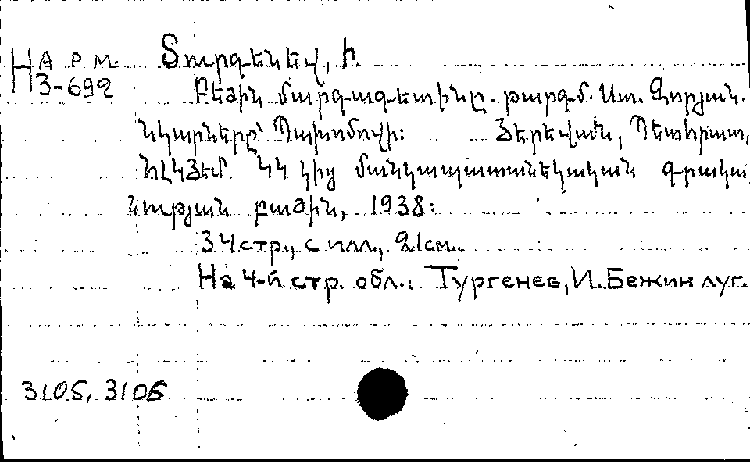 Н АРМ Տուրգենեվ, Ի.
3-692 Բեժին մարգագետինը. թարգմ. Ստ. Զորյան.
նկարները՝ Պախոմովի: Յերեվան, Պետհրատ,
ՀԼԿՅԵՄ ԿԿ կից մանկապատանեկական գրակա
նության բաժին, 1938:
34стр., с илл., 21см.
На 4-й стр. обл.: Тургенев, И. Бежин луг.
3105, 3106